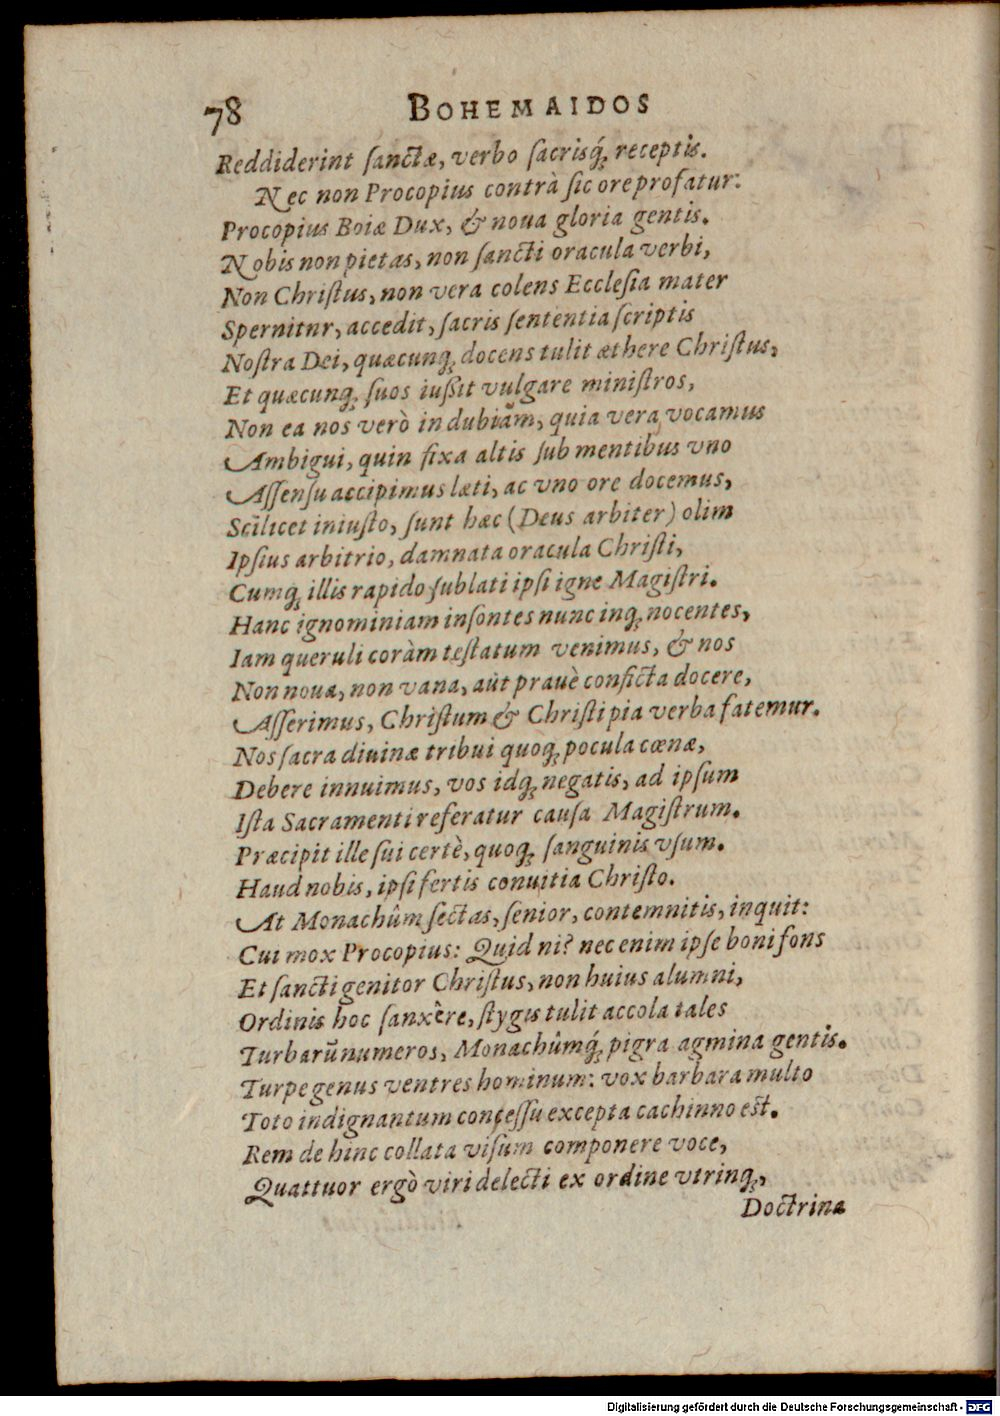 78 BOHEMAIDOS
Reddiderint ſanctæ, verbo ſacrisq́; receptis.
Nec non Procopius contrà ſic ore profatur:
Procopius Boiæ Dux, & noua gloria gentis.
Nobis non pietas, non ſancti oracula verbi,
Non Chriſtus, non vera colens Eccleſia mater
Spernitnr, accedit, ſacris ſententia ſcriptis
Noſtra Dei, quæcunq; docens tulit æthere Chriſtus,
Et quæcunq; ſuos iuſſit vulgare miniſtros,
Non ea nos verò in dubiãm, quia vera vocamus
Ambigui, quin fixa altis ſub mentibus vno
Aſſenſu accipimus læti, ac vno ore docemus,
Scilicet iniuſto, ſunt hæc (Deus arbiter) olim
Ipſius arbitrio, damnata oracula Chriſti,
Cumq; illis rapido ſublati ipſi igne Magiſtri.
Hanc ignominiam inſontes nunc inq; nocentes,
Iam queruli coràm teſtatum venimus, & nos
Non noua, non vana, aùt prauè conficta docere,
Aſſerimus, Chriſtum & Chriſti pia verba fatemur.
Nos ſacra diuinæ tribui quoq; pocula cœnæ,
Debere innuimus, vos idq; negatis, ad ipſum
Iſta Sacramenti referatur cauſa Magiſtrum.
Præcipit ille ſui certè, quoq; ſanguinis vſum.
Haud nobis, ipſi fertis conuitia Chriſto.
At Monachûm ſectas, ſenior, contemnitis, inquit:
Cui mox Procopius: Quid ni? nec enim ipſe boni fons
Et ſancti genitor Chriſtus, non huius alumni,
Ordinis hoc ſanxère, ſtygis tulit accola tales
Turbarũ numeros, Monachûmq́; pigra agmina gentis.
Turpe genus ventres hominum: vox barbara multo
Toto indignantum conceſſu excepta cachinno est.
Rem de hinc collata viſum componere voce,
Quattuor ergò viri delecti ex ordine vtrinq;,
Doctrina
Digitalisierung gefördert durch die Deutsche Forschungsgemeinschaft - DFG